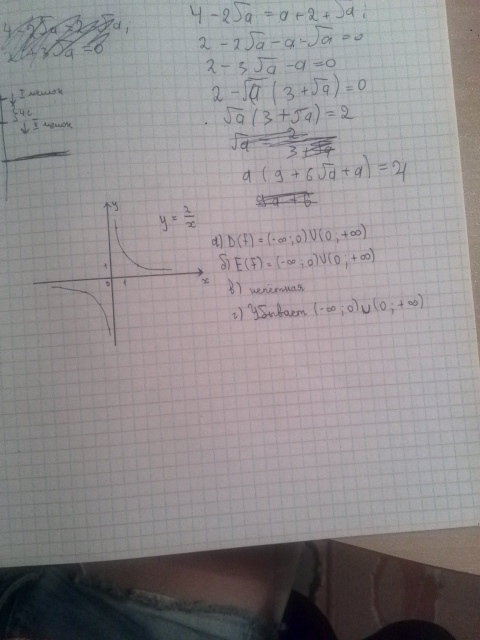 4 - 2√a = a + 2 + √a;
2 - 2√a - a - √a = 0
2 - 3√a - a = 0
2 - √a (3 + √a) = 0
√a (3 + √a) = 2
a (9 + 6√a + a) = 4
y
y = 2/x
1
0
1
x
а) D(f) = (-∞; 0)∪(0; +∞)
б) E(f) = (-∞; 0)∪(0; +∞)
в) нечетная
г) Убывает (-∞; 0)∪(0; +∞)